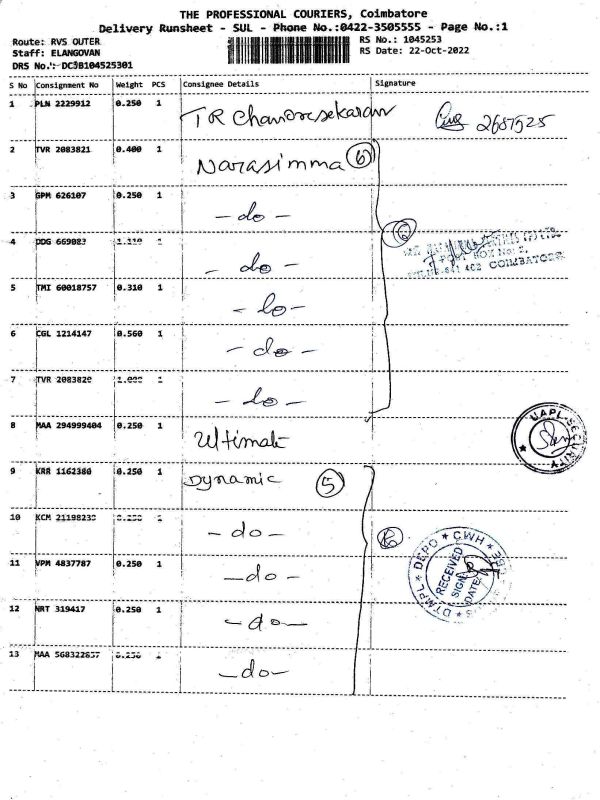 THE PROFESSIONAL COURIERS, Coimbatore
Delivery Runsheet - SUL - Phone No.:0422-3505555 - Page No.:1
Route: RVS OUTER
Staff: ELANGOVAN
DRS No.: DC3B104525301
RS No.: 1045253
RS Date: 22-Oct-2022
S No Consignment No Weight PCS Consignee Details Signature
1 PLN 2229912 0.250 1 TR Chandrasekaran 2687525
2 TVR 2083821 0.400 1 Narasimma 6
3 GPM 626107 0.250 1 - do -
4 DDG 669083 1.110 1 - do -
6
POST BOX NO: 2,
641 402 COIMBATORE
5 TMI 60018757 0.310 1 - do -
6 CGL 1214147 0.560 1 - do -
7 TVR 2083820 1.000 1 - do -
8 MAA 294999404 0.250 1 Ultimate
UAPL-SECURITY
9 KRR 1162380 0.250 1 Dynamic 5
10 KCM 21198230 0.250 1 - do -
DTMPL * DEPO * CWH *
RECEIVED
SIGN
DATE
11 VPM 4837787 0.250 1 - do -
12 NRT 319417 0.250 1 - do -
13 MAA 568322637 0.250 1 - do -